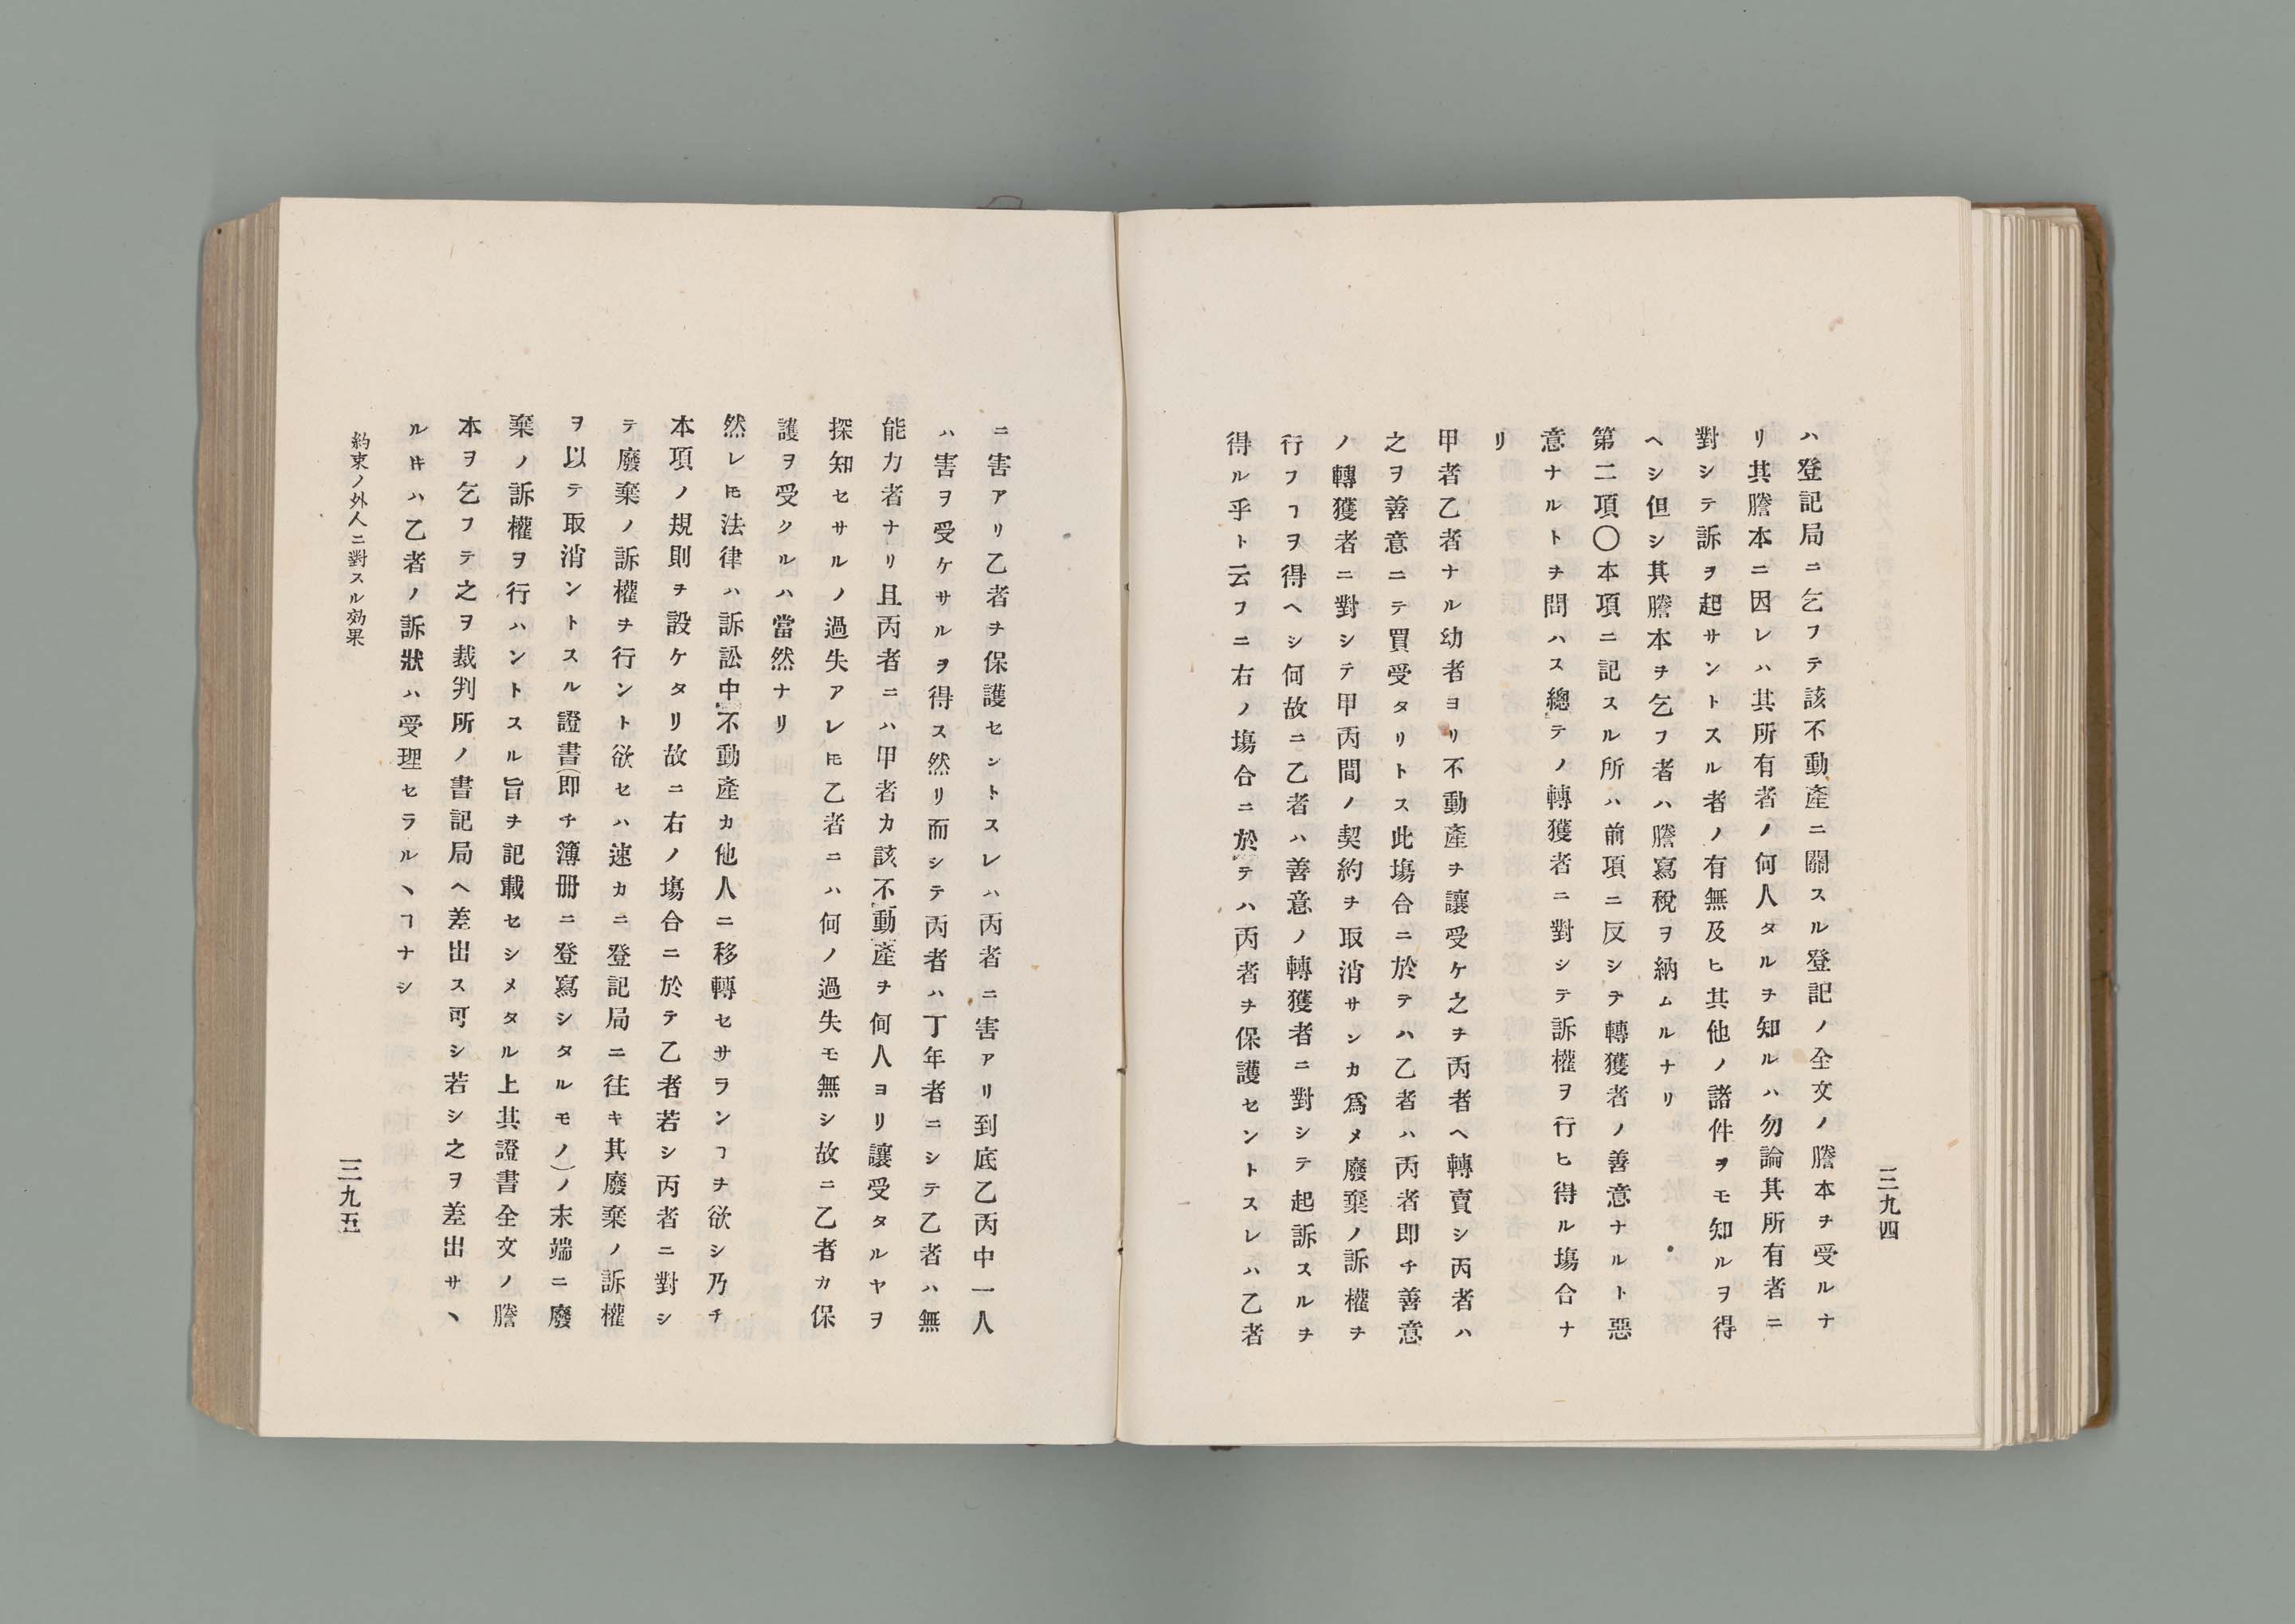 三九四
ハ登記局ニ乞フテ該不動產ニ關スル登記ノ全文ノ謄本ヲ受ルナ
リ其謄本ニ因レハ其所有者ノ何人タルヲ知ルハ勿論其所有者ニ
對シテ訴ヲ起サントスル者ノ有無及ヒ其他ノ諸件ヲモ知ルヲ得
ヘシ但シ其謄本ヲ乞フ者ハ謄寫稅ヲ納ムルナリ
第二項〇本項ニ記スル所ハ前項ニ反シテ轉獲者ノ善意ナルト惡
意ナルトヲ問ハス總テノ轉獲者ニ對シテ訴權ヲ行ヒ得ル塲合ナ
リ
甲者乙者ナル幼者ヨリ不動產ヲ讓受ケ之ヲ丙者ヘ轉賣シ丙者ハ
之ヲ善意ニテ買受タリトス此塲合ニ於テハ乙者ハ丙者即チ善意
ノ轉獲者ニ對シテ甲丙間ノ契約ヲ取消サンカ爲メ廢棄ノ訴權ヲ
行フヿヲ得ヘシ何故ニ乙者ハ善意ノ轉獲者ニ對シテ起訴スルヲ
得ル乎ト云フニ右ノ塲合ニ於テハ丙者ヲ保護セントスレハ乙者
ニ害アリ乙者ヲ保護セントスレハ丙者ニ害アリ到底乙丙中一人
ハ害ヲ受ケサルヲ得ス然リ而シテ丙者ハ丁年者ニシテ乙者ハ無
能力者ナリ且丙者ニハ甲者カ該不動產ヲ何人ヨリ讓受タルヤヲ
探知セサルノ過失アレ𪜈乙者ニハ何ノ過失モ無シ故ニ乙者カ保
護ヲ受クルハ當然ナリ
然レ𪜈法律ハ訴訟中不動產カ他人ニ移轉セサランヿヲ欲シ乃チ
本項ノ規則ヲ設ケタリ故ニ右ノ塲合ニ於テ乙者若シ丙者ニ對シ
テ廢棄ノ訴權ヲ行ント欲セハ速カニ登記局ニ往キ其廢棄ノ訴權
ヲ以テ取消ントスル證書(即チ簿冊ニ登寫シタルモノ)ノ末端ニ廢
棄ノ訴權ヲ行ハントスル旨ヲ記載セシメタル上其證書全文ノ謄
本ヲ乞フテ之ヲ裁判所ノ書記局ヘ差出ス可シ若シ之ヲ差出サヽ
ル𪜈ハ乙者ノ訴狀ハ受理セラルヽヿナシ
約束ノ外人ニ對スル効果
三九五